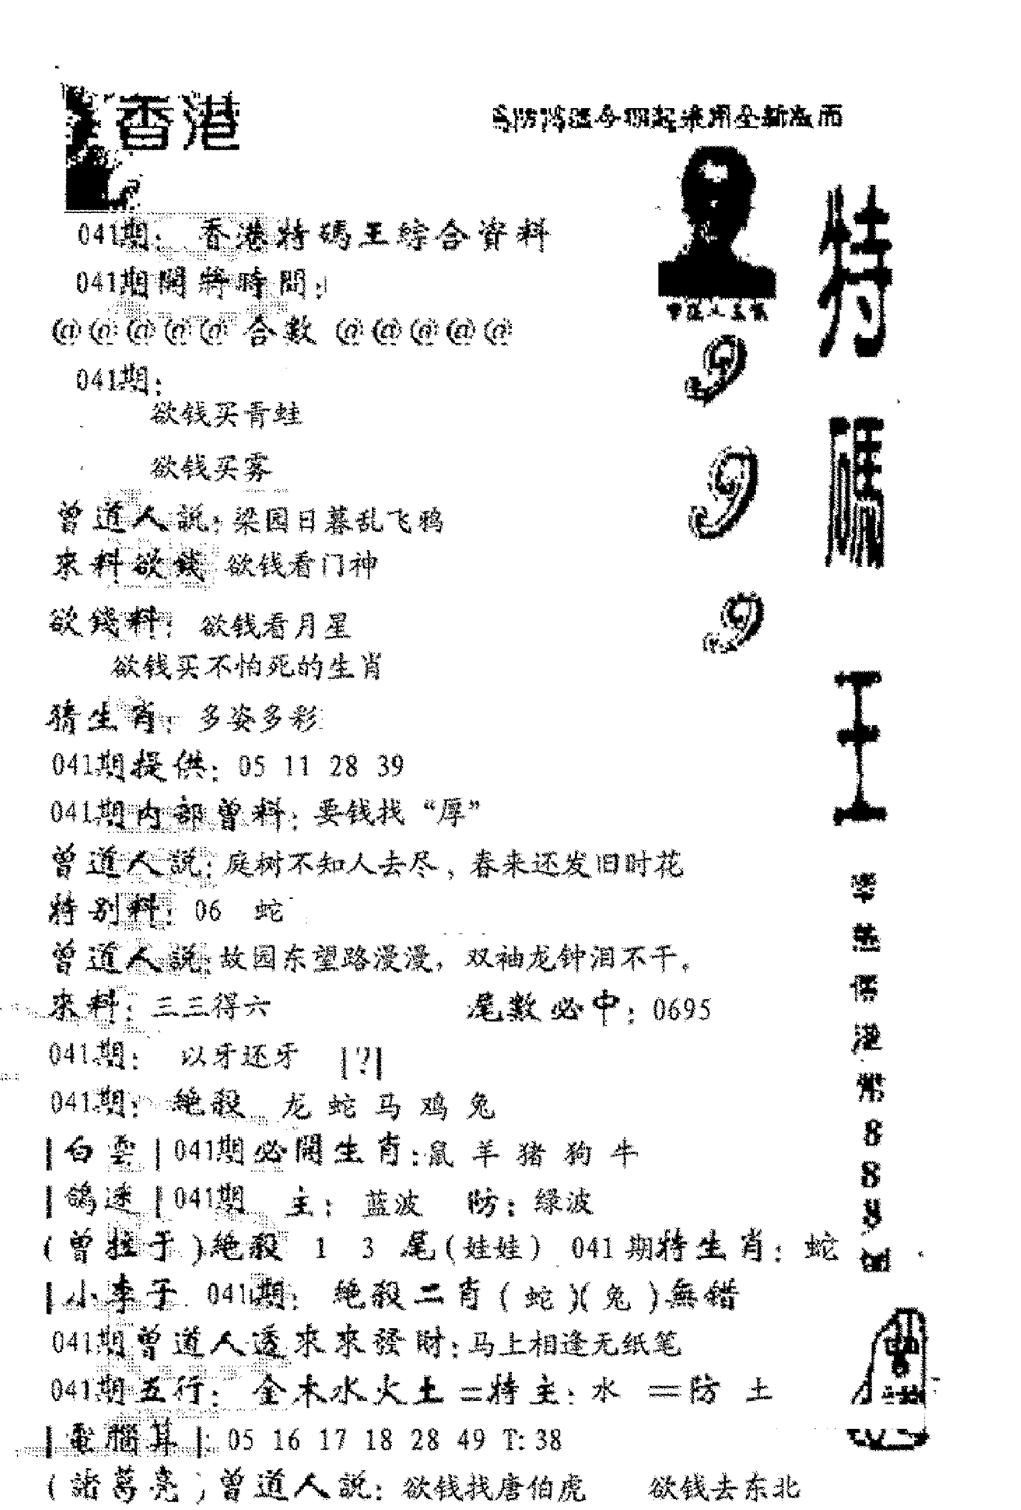 香港
041期：香港特碼王綜合資料
041期開獎時間：
@@@@@合數@@@@@
041期：
欲钱买青蛙
欲钱买雾
曾道人説：梁园日暮乱飞鸦
來料欲錢 欲钱看门神
欲錢料：欲钱看月星
欲钱买不怕死的生肖
猜生肖：多姿多彩
041期提供：05 11 28 39
041期内部曾料：要钱找“厚”
曾道人説：庭树不知人去尽，春来还发旧时花
特别料：06 蛇
曾道人説：故园东望路漫漫，双袖龙钟泪不干。
來料：三三得六 尾數必中：0695
041期：以牙还牙 |?|
041期：絶殺 龙 蛇 马 鸡 兔
|白雲|041期必開生肖：鼠 羊 猪 狗 牛
|鴿迷|041期 主：蓝波 防：绿波
(曾拉于)絶殺 1 3 尾(娃娃) 041期特生肖：蛇
|小李子 041期：絶殺二肖(蛇)(兔)無錯
041期曾道人透來來發財：马上相逢无纸笔
041期五行：金木水火土=特主：水 =防 土
|電腦算|：05 16 17 18 28 49 T:38
(諸葛亮)曾道人説：欲钱找唐伯虎 欲钱去东北
特碼王
999
888